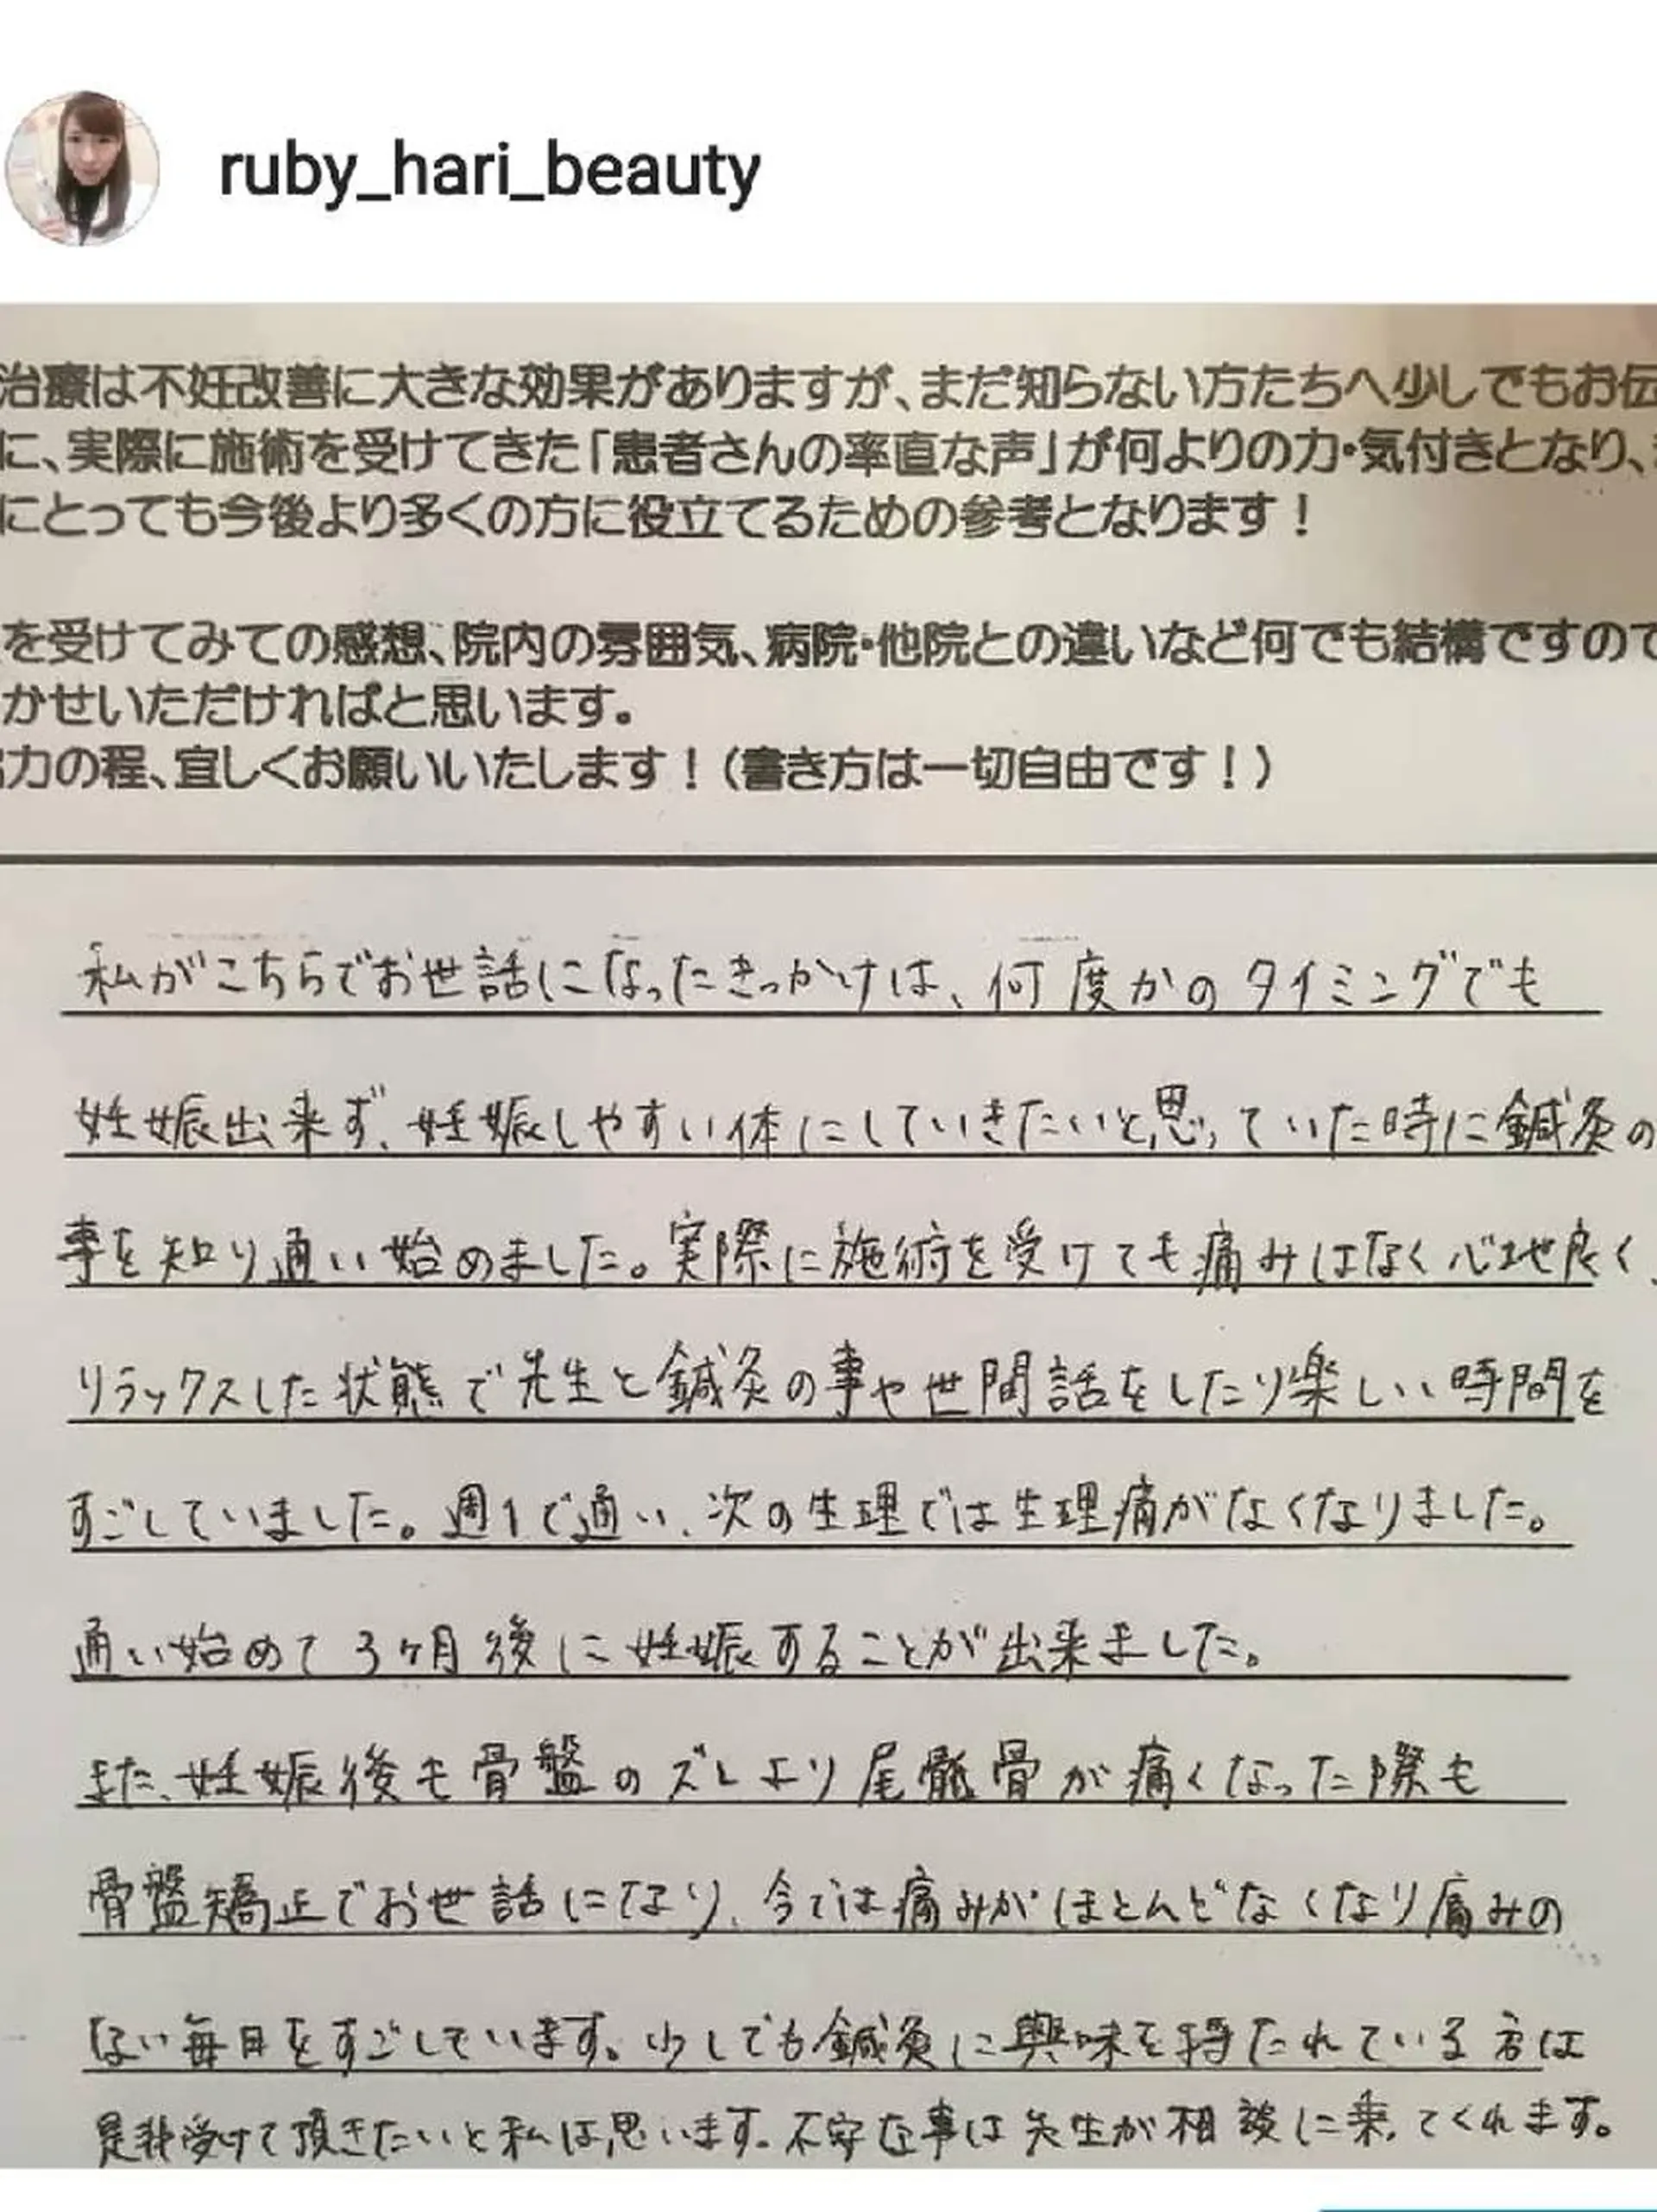 ruby_hari_beauty
治療は不妊改善に大きな効果がありますが、まだ知らない方たちへ少しでもお伝
に、実際に施術を受けてきた「患者さんの率直な声」が何よりの力・気付きとなり、
にとっても今後より多くの方に役立てるための参考となります！
を受けてみての感想、院内の雰囲気、病院・他院との違いなど何でも結構ですので
かせいただければと思います。
力の程、宜しくお願いいたします！（書き方は一切自由です！）
私がこちらでお世話になったきっかけは、何度かのタイミングでも
妊娠出来ず、妊娠しやすい体にしていきたいと思っていた時に鍼灸の
事を知り通い始めました。実際に施術を受けても痛みはなく心地良く、
リラックスした状態で先生と鍼灸の事や世間話をしたり楽しい時間を
すごしていました。週1で通い、次の生理では生理痛がなくなりました。
通い始めて3ヶ月後に妊娠することが出来ました。
また、妊娠後も骨盤のズレより尾骶骨が痛くなった際も
骨盤矯正でお世話になり、今では痛みがほとんどなくなり痛みの
ない毎日をすごしています。少しでも鍼灸に興味を持たれている方は
是非受けて頂きたいと私は思います。不安な事は先生が相談に乗ってくれます。